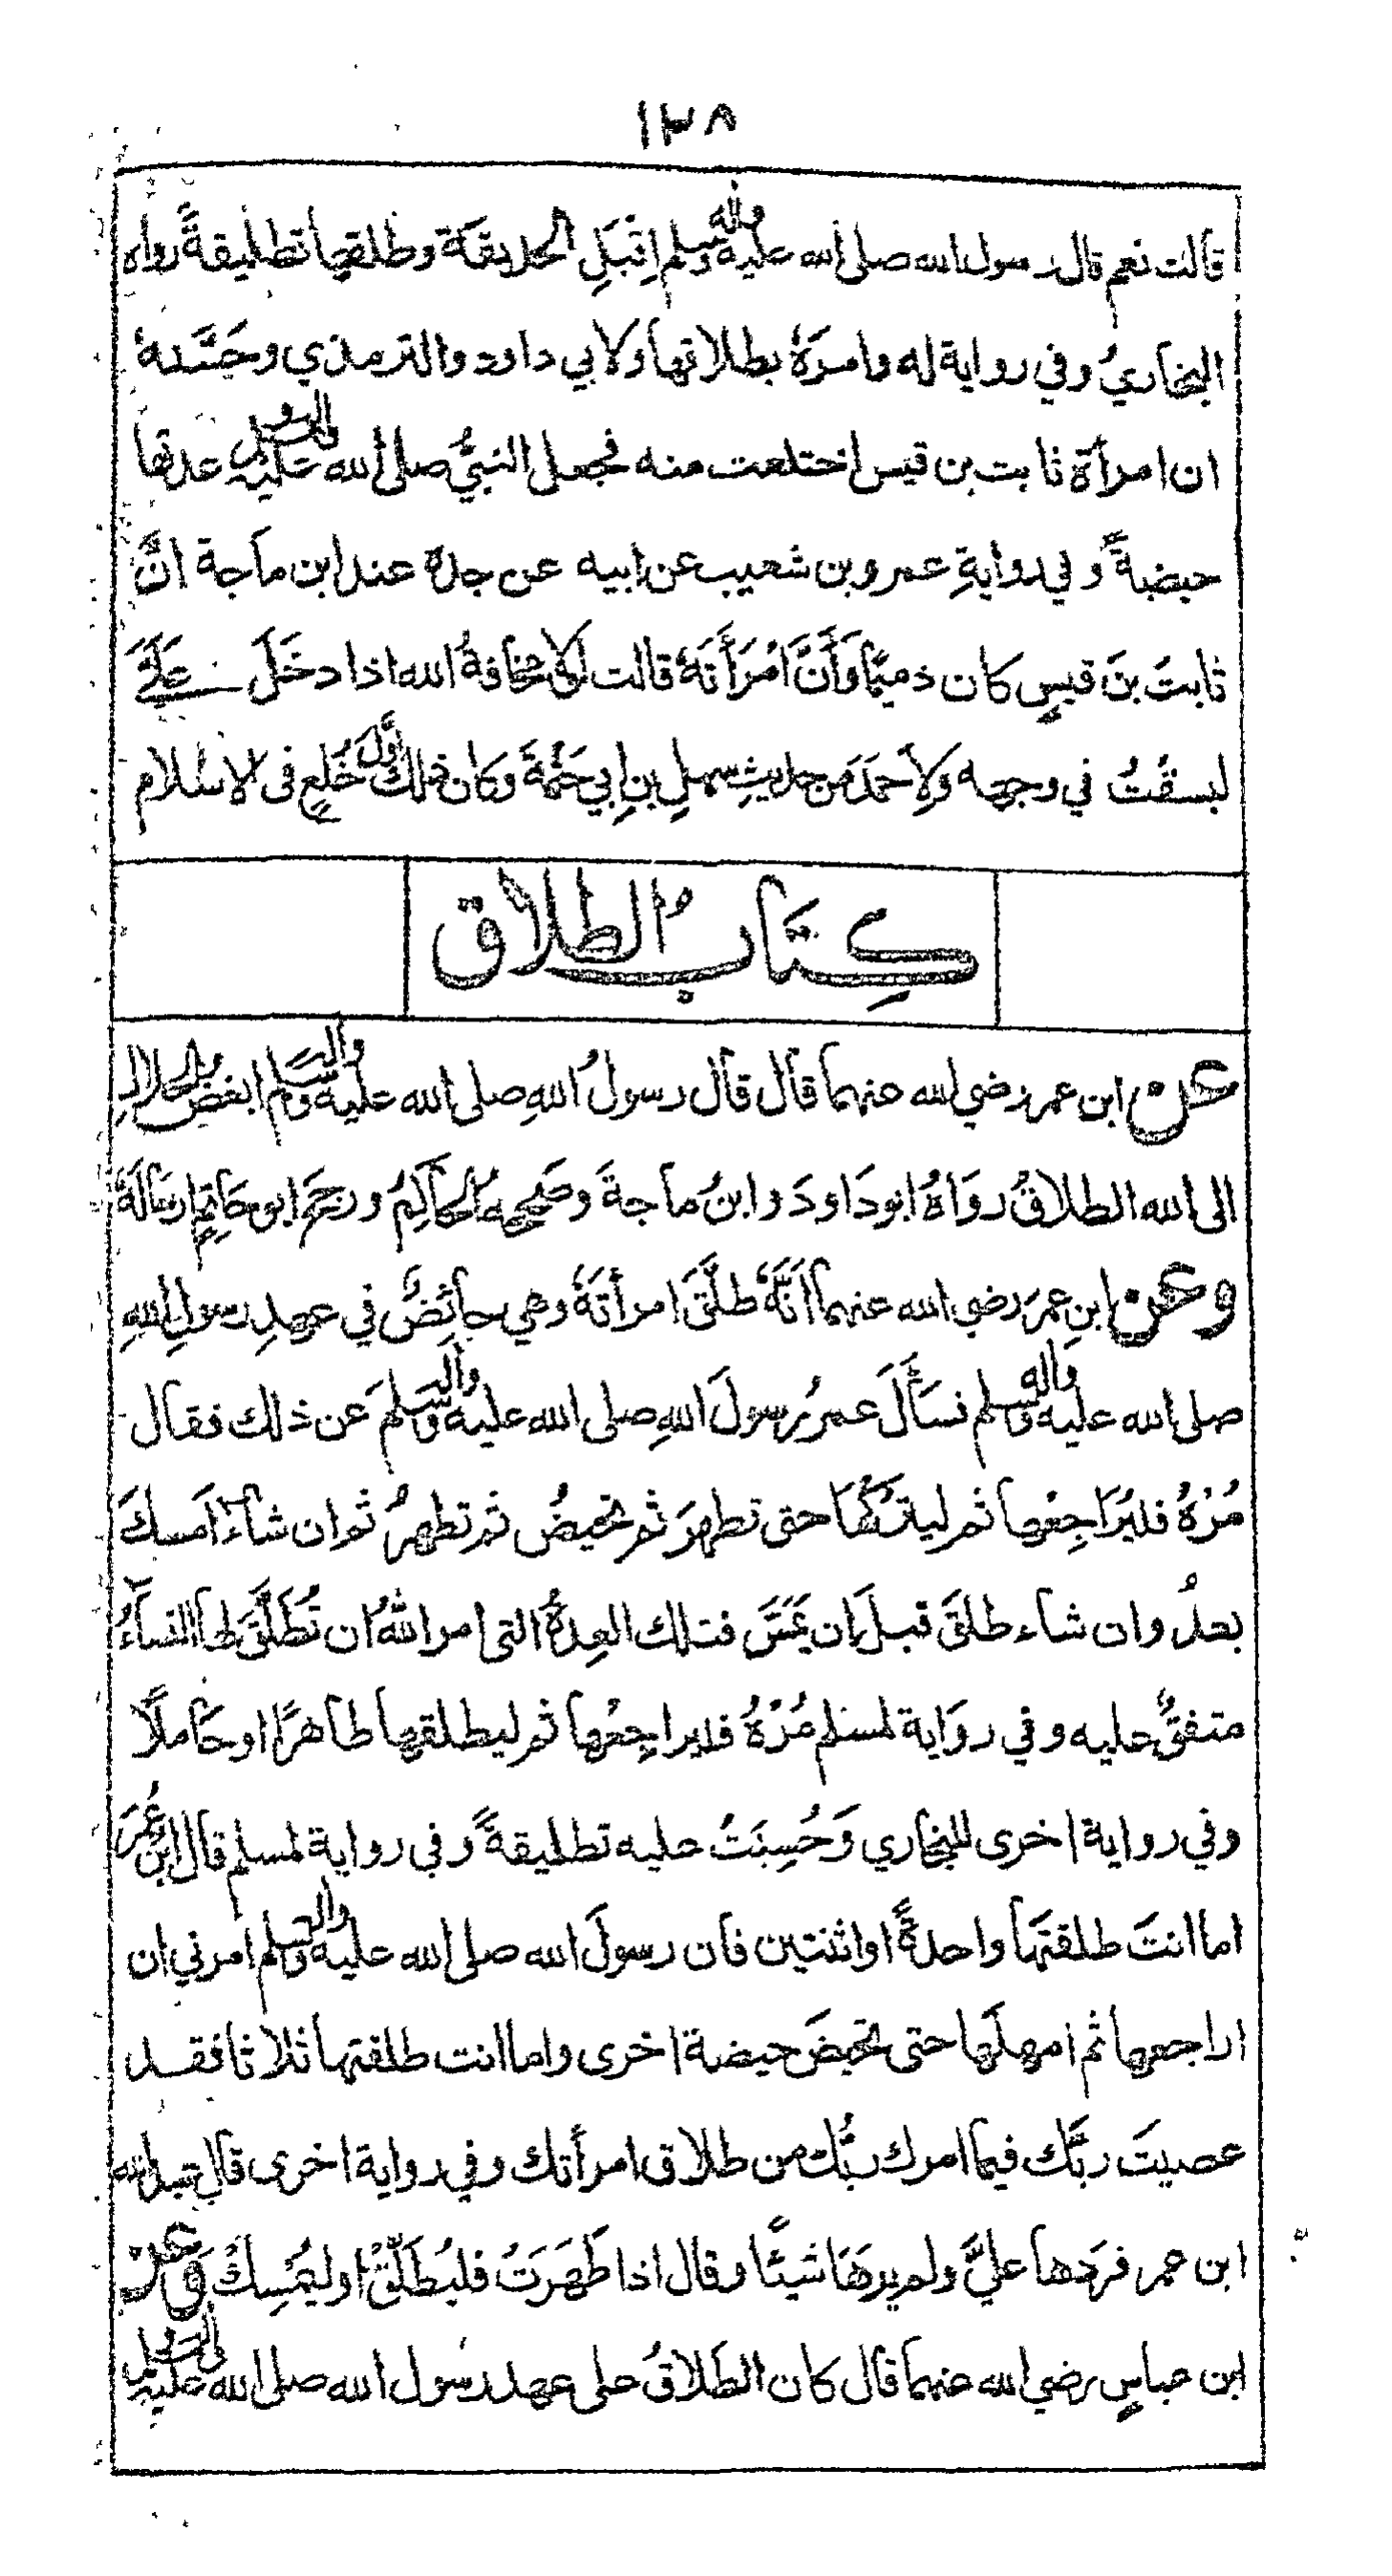 ١٣٨
قالت نعم قال رسول الله صلى الله عليه واله وسلم اِقْبَلِ الحديقة وطلقها تطليقةً رواه
البخاريُ وفي رواية له وامرَهٗ بطلاقها ولابي داود والترمذي وحَسَّنه
ان امرأة ثابت بن قيس اختلعت منه فجعل النبيُّ صلى الله عليه واله وسلم عدتها
حيضةً وفي روايةِ عمرو بن شعيب عن ابيه عن جده عند ابن ماجة انَّ
ثابتَ بنَ قيسٍ كان دميمًا وَأَنَّ امْرَأَتَهٗ قالت لولا مخافةُ الله اذا دخَلَ عَلَيَّ
لبسقْتُ في وجهه ولِاَحمَدَ من حديثِ سهلِ بنِ اِبي حَثْمَةَ وكان ذلك أوَّلَ خُلعٍ فى الاسلام
كِتَابُ الطلاق
عن ابن عمر رضي الله عنهما قال قال رسولُ اللهِ صلى الله عليه واله وسلم ابغض الحلال
الى الله الطلاقُ روَاهُ ابودَاودَ وابنُ ماجةَ وصححه الحاكِمُ ورجح ابو حاتم ارسالَهٗ
وعن ابنِ عمَرَ رضي الله عنهما اَنَّهٗ طلَّقَ امرأتَهٗ وهي حائِضٌ في عهدِ رسولِ اللهِ
صلى الله عليه واله وسلم فسَأَلَ عمرُ رسولَ اللهِ صلى الله عليه واله وسلمَ عن ذلك فقال
مُرْهُ فليُرَاجِعْها ثم ليترُكْهَا حتى تطهرَ ثم تحيضُ ثم تطهرُ ثم ان شاءَ امسكَ
بعدُ وان شاء طلقَ قبلَ ان يَمَسَّ فتلك العِدةُ التى امر اللهُ ان تُطَلَّقَ لها النساءُ
متفقٌ عليه وفي روَاية لمسلم مُرْهُ فليراجِعْها ثم ليطلقها طاهرًا او حَاملًا
وفي رواية اخرى للبخاري وَحُسِبَتْ عليه تطليقةً وفي رواية لمسلم قال ابن عُمَرَ
اما انتَ طلقتَها واحدةً او اثنتين فان رسولَ الله صلى الله عليه واله وسلم امرني ان
اراجعها ثم امهلَها حتى تحيضَ حيضة اخرى واما انت طلقتها ثلاثا فقد
عصيتَ ربَّك فيما امرك ربُّك من طلاق امرأتك وفي رواية اخرى قال عبد الله
ابن عمر فردَها عليَّ ولم يرهَا شيئًا وقال اذا طَهَرَتْ فليُطَلِّقْ او ليُمْسِكْ وَعن
ابن عباسٍ رضي الله عنهما قال كان الطَلاقُ على عهد رسول الله صلى الله عليه واله وسلم